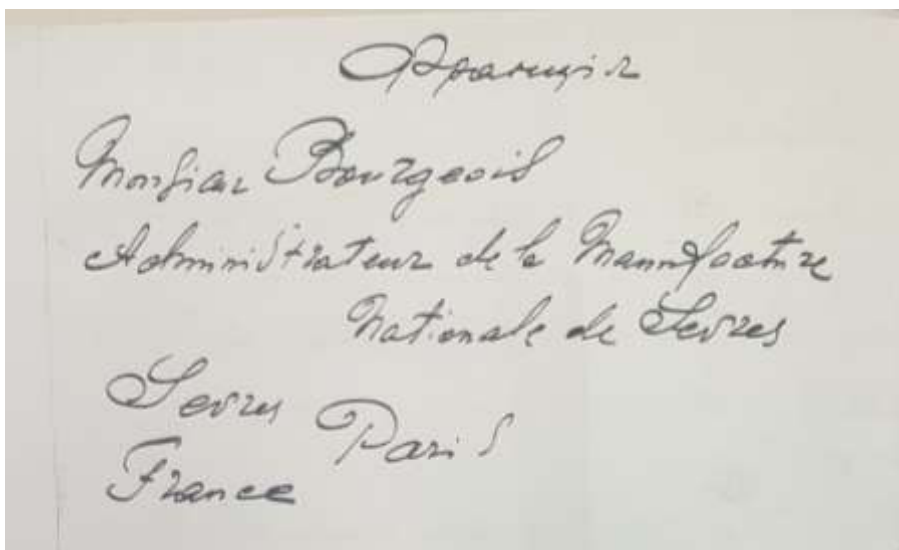 Франція
Monsieur Bourgeois
Administrateur de la Mannifacture
Nationale de Sevres
Sevres Paris
France